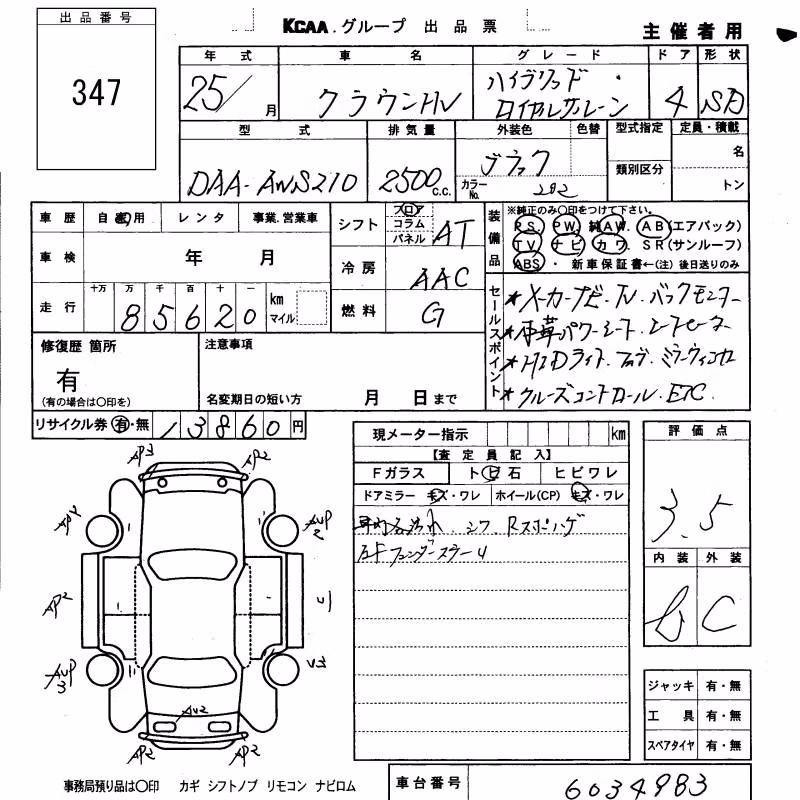 出品番号
347
KCAA.グループ 出品票
主催者用
年式 車名 グレード ドア 形状
25/ 月 クラウンHV ハイブリッド・ 4 SD
ロイヤルサルーン
型式 排気量 外装色 色替 型式指定 定員・積載
DAA-AWS210 2500 c.c. ブラック 類別区分 名
カラーNo. 202 トン
車歴 自家用 レンタ 事業.営業車
車検 年 月
走行 十万 万 千 百 十 一
85620 km マイル
シフト フロア コラム パネル AT
冷房 AAC
燃料 G
装備品 ※純正のみ○印をつけて下さい。
PS. PW. 純AW. AB(エアバック)
TV ナビ カワ SR(サンルーフ)
ABS・ 新車保証書←(注)後日送りのみ
セールスポイント
★メーカーナビ.TV.バックモニター
★本革パワーシート.シートヒーター
★HIDライト.フォグ.ミラーウィンカー
★クルーズコントロール.ETC.
修復歴 箇所
有
(有の場合は○印を)
注意事項
名変期日の短い方 月 日まで
リサイクル券 有・無 13860円
現メーター指示 km
【査定員記入】
Fガラス トビ石 ヒビワレ
ドアミラー キズ・ワレ ホイール(CP) キズ・ワレ
シワ.Rスポ
フェンダーステー
評価点
3.5
内装 外装
B C
AP3 AP2
AP4 AUP2
AP2 U1
AUP3 U3
AU2
AP2 AP2
ジャッキ 有・無
工具 有・無
スペアタイヤ 有・無
事務局預り品は○印 カギ シフトノブ リモコン ナビロム
車台番号 6034983